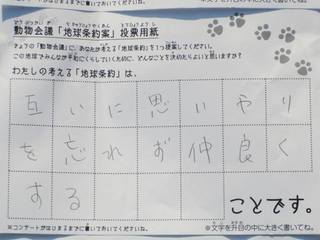 動物会議「地球条約案」投票用紙
きょうの「動物会議」に、あなたが考える「地球条約」を1つ提案してください。
この地球でみんなが平和にくらしていくために、どんなことを決めたらよいと思いますか?
わたしの考える「地球条約」は、
互いに思いやり
を忘れず仲良く
する
ことです。
※コンサートがはじまるまでに書いておいてくださいね。
※文字を升目の中に大きく書いてね。